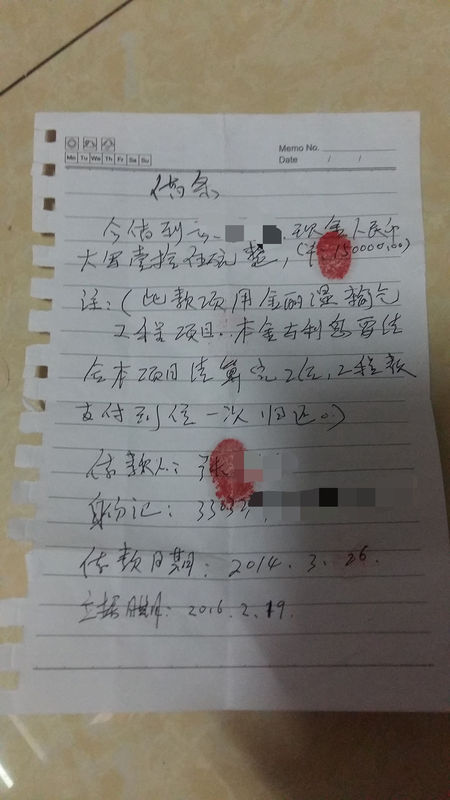 Memo No.
Mo Tu We Th Fr Sa Su
Date / /
借条
今借到 现金人民币
大写壹拾伍万整,(¥:150000.00)
注:(此款项用金丽温输气
工程项目.本金与利息
在本项目结算完 工程款
支付到位一次归还。)
借款人:张
身份证:3303
借款日期:2014.3.26.
立据日期:2016.2.19.